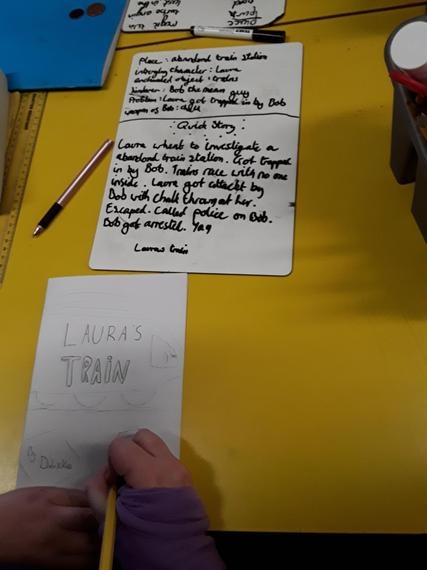 Place : abandond train station
character : Laura
object : trains
: Bob the mean guy
Problem : Laura got trapped in by Bob
weapon of Bob : chalk
: Quick Story :
Laura whent to investigate a
abandond train station. Got trapped
in by Bob. Trains race with no one
inside. Laura got attackt by
Bob with chalk at her.
Escaped. Called police on Bob.
Bob got arrestel. Yay
Lauras train
LAURA'S
TRAIN
By